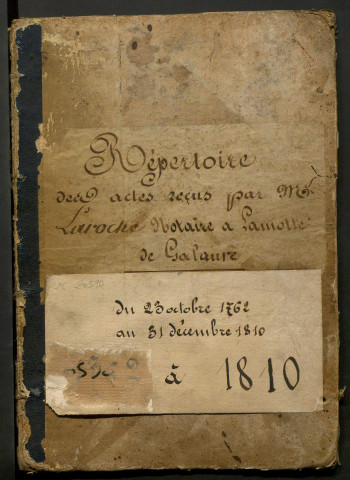 Répertoire
des actes reçus par Me
Laroche Notaire a Lamotte
de Galaure
du 23 octobre 1762
au 31 décembre 1810
à 1810